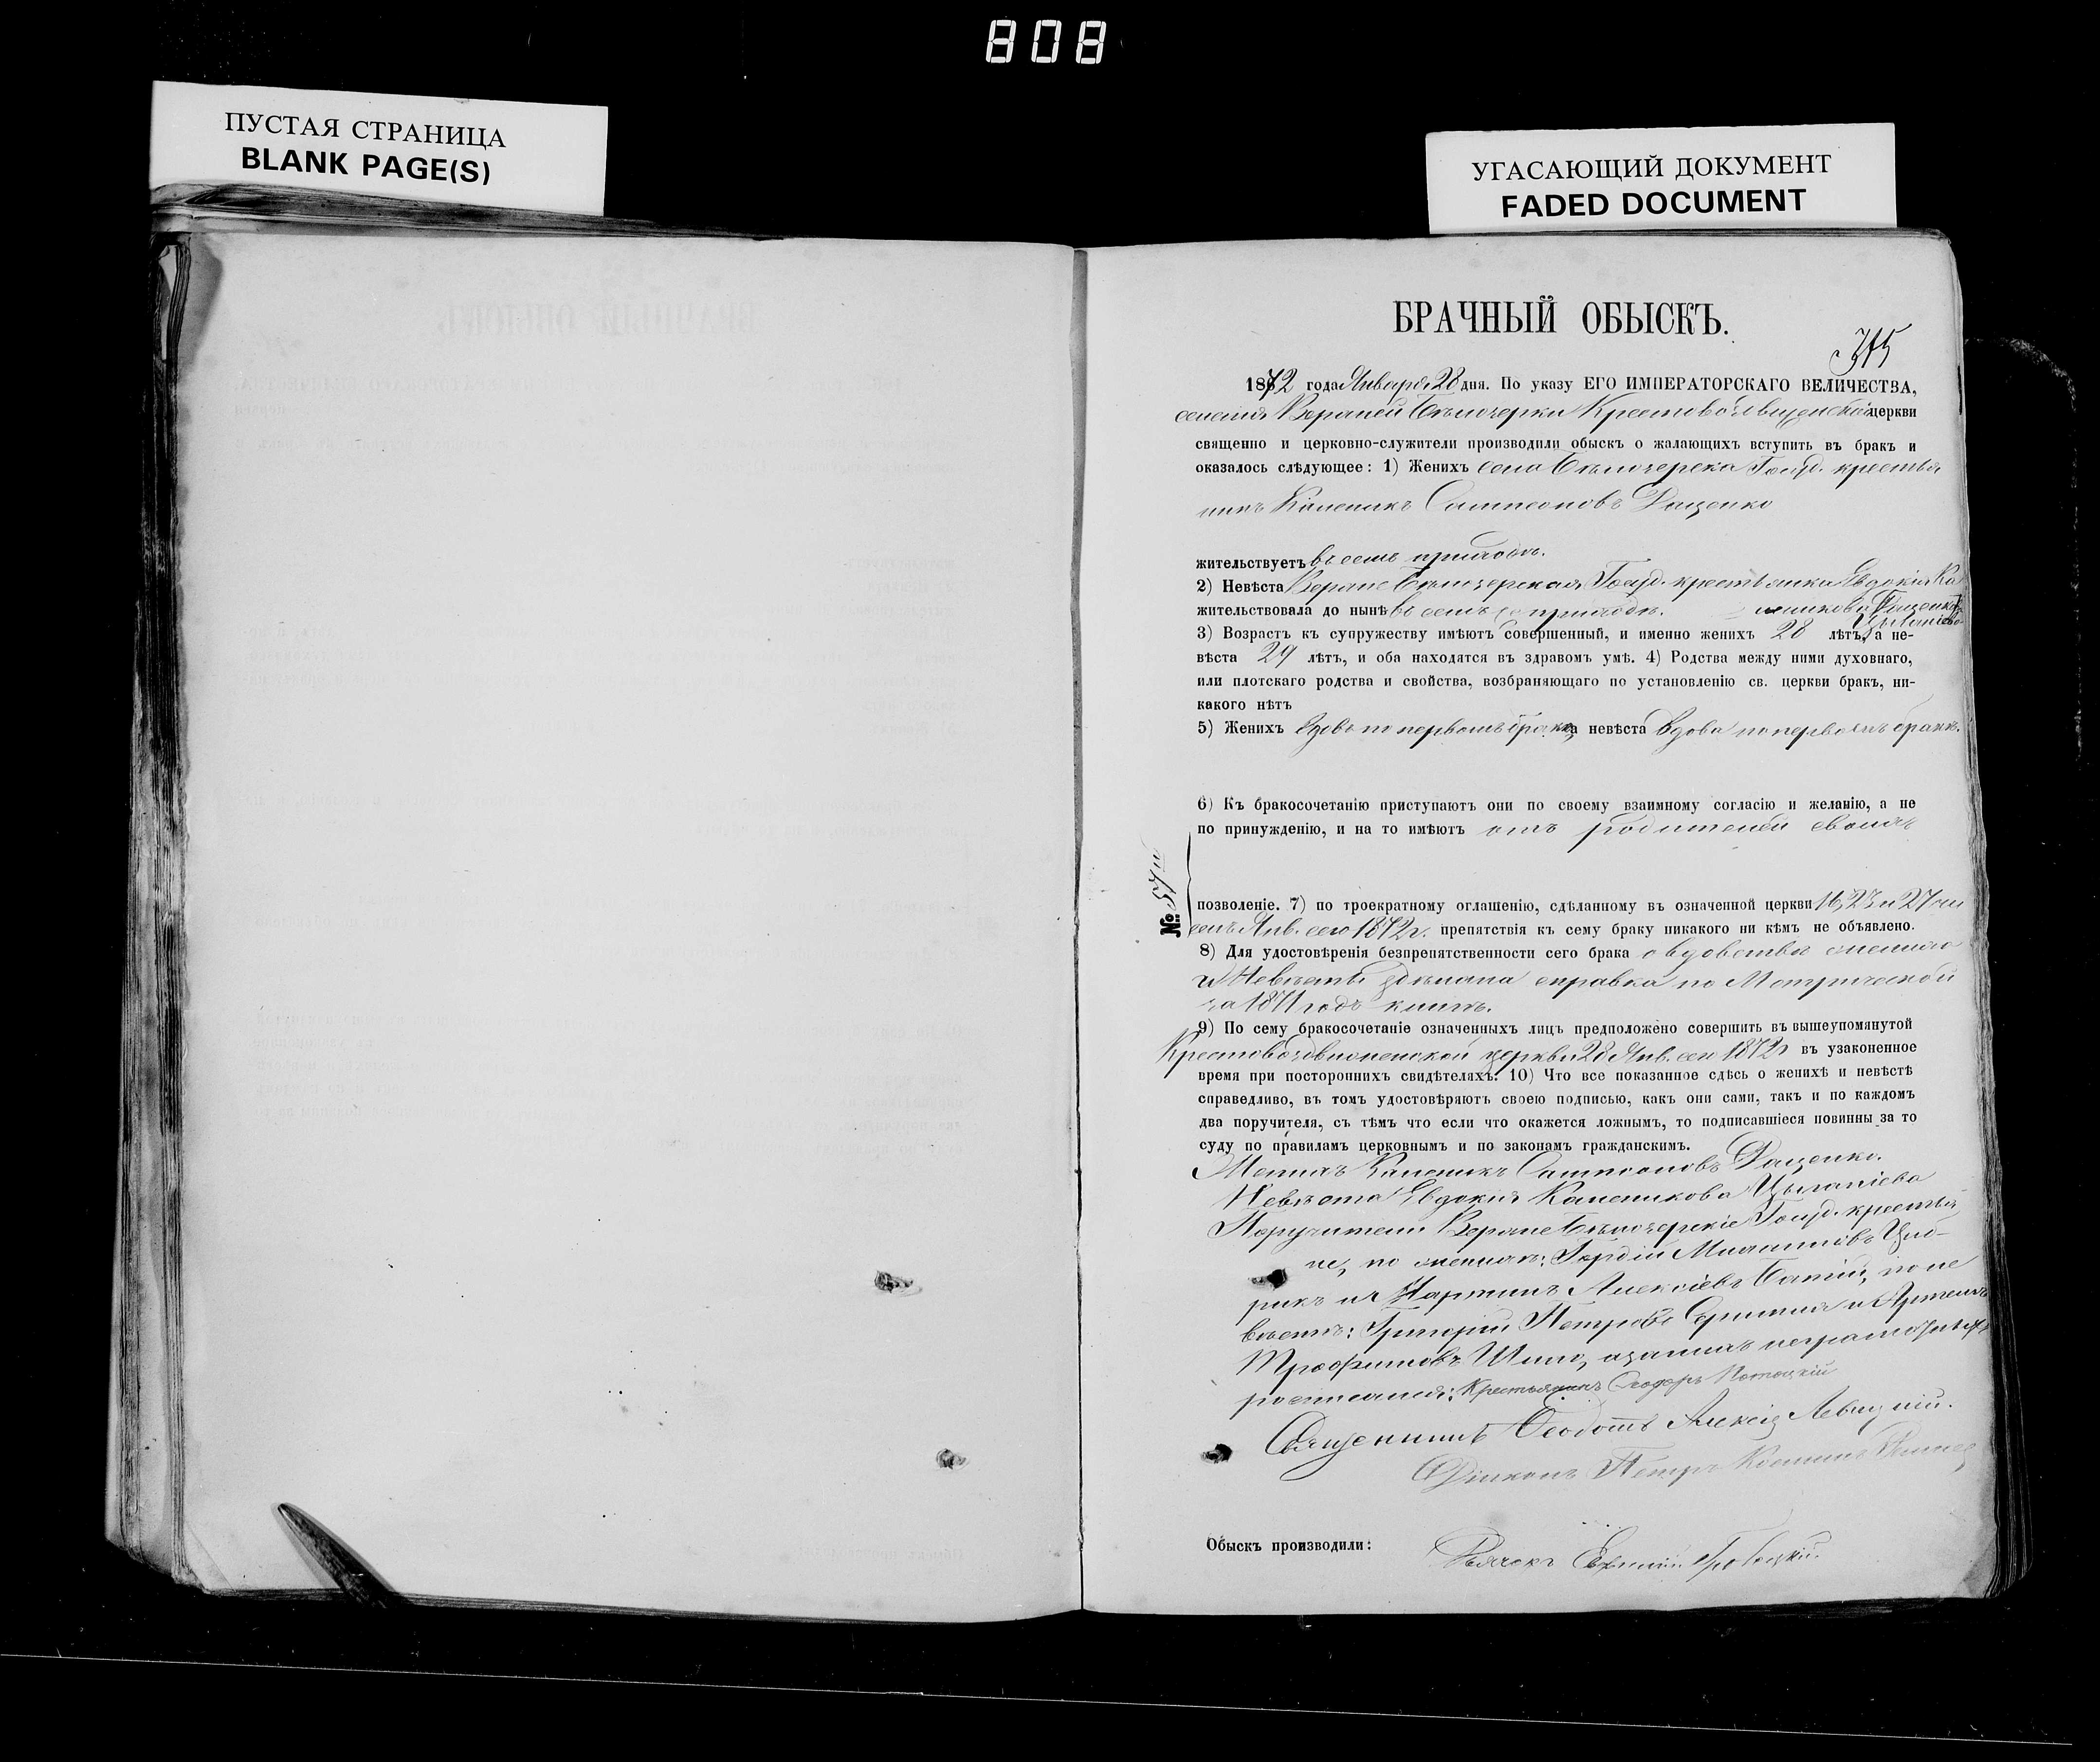 808
ПУСТАЯ СТРАНИЦА
BLANK PAGE(S)
УГАСАЮЩИЙ ДОКУМЕНТ
FADED DOCUMENT
БРАЧНЫЙ ОБЫСКЪ.
1872 года Января 28 дня. По указу ЕГО ИМПЕРАТОРСКАГО ВЕЛИЧЕСТВА,
Крестовоздвиженской церкви
священно и церковно-служители производили обыскъ о жалающихъ вступить въ бракъ и
оказалось слѣдующее: 1) Женихъ села Бѣлозерка Госуд. крестья
нинъ Каленикъ Сампсоновъ Даценко
жительствуетъ въ семъ приходѣ.
2) Невѣста Бѣлозерская Госуд. крестьянка Евдокія Ка
жительствовала до нынѣ въ семъ приходѣ. леникова Цыганкова
3) Возрастъ къ супружеству имѣютъ совершенный, и именно женихъ 28 лѣтъ, а не-
вѣста 29 лѣтъ, и оба находятся въ здравомъ умѣ. 4) Родства между ними духовнаго,
или плотскаго родства и свойства, возбраняющаго по установленію св. церкви бракъ, ни-
какого нѣтъ
5) Женихъ вдовъ по первомъ бракѣ, а невѣста вдова по первомъ бракѣ.
6) Къ бракосочетанію приступаютъ они по своему взаимному согласію и желанію, а не
по принужденію, и на то имѣютъ отъ родителей своихъ
№ 57й
позволеніе. 7) по троекратному оглашенію, сдѣланному въ означенной церкви 16, 23 и 27 чи
селъ Янв. сего 1872 г. препятствія къ сему браку никакого ни кѣмъ не объявлено.
8) Для удостовѣренія безпрепятственности сего брака о вдовствѣ жениха
и Невѣсты здѣлана справка по Метрической
за 1871 годъ книгѣ.
9) По сему бракосочетаніе означенныхъ лицъ предположено совершить въ вышеупомянутой
Крестовоздвиженской церкви 28 Янв. сего 1872 г въ узаконенное
время при постороннихъ свидѣтеляхъ. 10) Что все показанное сдѣсь о женихѣ и невѣстѣ
справедливо, въ томъ удостовѣряютъ своею подписью, какъ они сами, такъ и по каждомъ
два поручителя, съ тѣмъ что если что окажется ложнымъ, то подписавшіеся повинны за то
суду по правиламъ церковнымъ и по законамъ гражданскимъ.
Женихъ Каленикъ Сампсоновъ Даценко.
Невѣста Евдокія Каленикова
Поручители Бѣлозерскіе Госуд. крестья
не, по женихѣ: Гордій
и Мартинъ Алексіевъ по не
вѣстѣ: Григорій Петровъ и Артемъ
Трофимовъ Шило, а за нихъ неграмотныхъ
росписался: Крестьянинъ Ѳеодоръ
Священникъ Ѳеодотъ Алексіевъ Левицкій.
Діаконъ Петръ
Обыскъ производили:
Дьячокъ